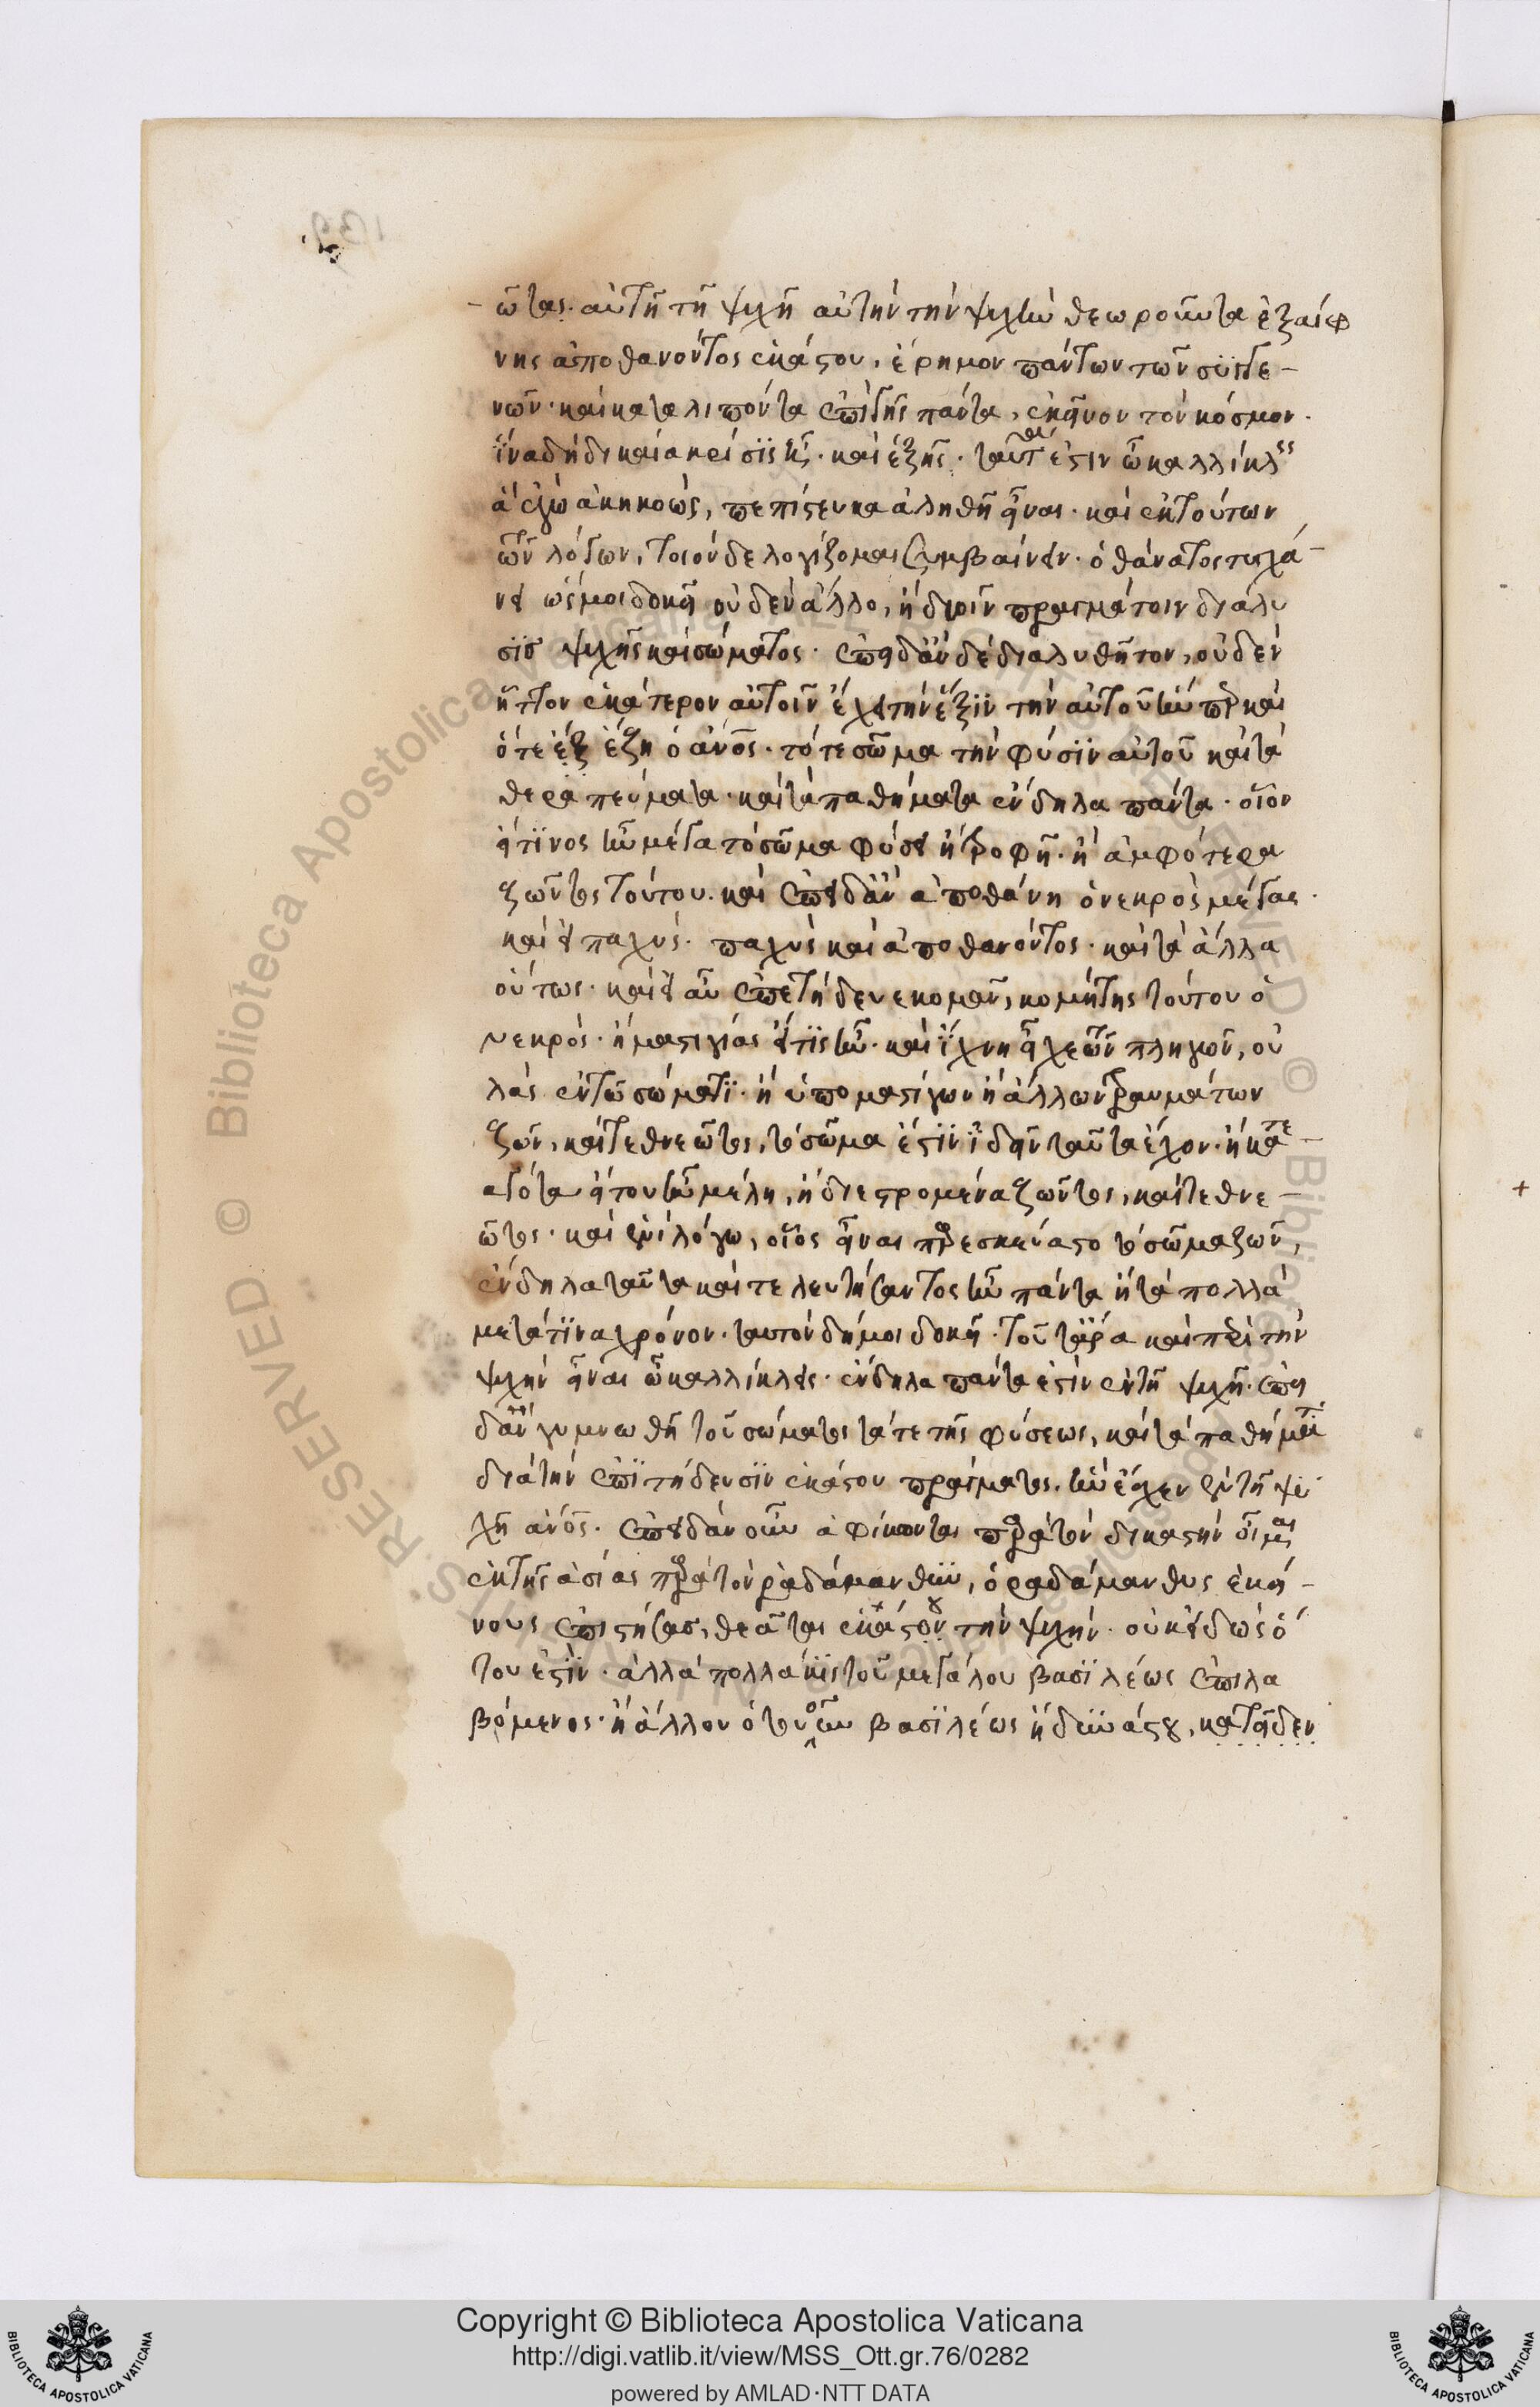 ῶτας. αὐτῆ τῆ ψυχῆ αὐτὴν τὴν ψυχὴν θεωροῦντα ἐξαίφ
νης ἀποθανόντος ἑκάστου, ἔρημον πάντων τῶν συγγε-
νῶν· καὶ καταλιπόντα ἐπὶ γῆς πάντα, ἐκεῖνον τὸν κόσμον.
ἵνα δὴ δικαία κρίσις ᾖ. καὶ ἑξῆς. ταῦτ ἔστιν ὦ καλλίκλεις
ἃ ἐγὼ ἀκηκοὼς, πεπίστευκα ἀληθῆ εἶναι. καὶ ἐκ τούτων
τῶν λόγων, τοιόνδε λογίζομαι συμβαίνειν. ὁ θάνατος τυγχά-
νει ὡς ἐμοὶ δοκεῖ οὐδὲν ἄλλο, ἢ δυοῖν πραγμάτοιν διάλυ
σις ψυχῆς καὶ σώματος. ἐπειδὰν δὲ διαλυθῆτον, οὐδὲν
ἧττον ἑκάτερον αὐτοῖν ἔχει τὴν ἕξιν τὴν αὐτοῦ ἥν περ καὶ
ὅτε ἐξ ἔζη ὁ ἄνος. τό τε σῶμα τὴν φύσιν αὐτοῦ καὶ τὰ
θεραπεύματα. καὶ τὰ παθήματα ἔνδηλα πάντα. οἷον
εἴ τινος ἦν μέγα τὸ σῶμα φύσει ἢ τροφῆ. ἢ ἀμφότερα
ζῶντος τούτου. καὶ ἐπειδὰν ἀποθάνη ὁ νεκρὸς μέγας.
καὶ εἰ παχύς. παχὺς καὶ ἀποθανόντος. καὶ τὰ ἄλλα
οὕτως. καὶ εἰ αὖ ἐπετήδευε κομᾶν, κομήτης τούτου ὁ
νεκρός. ἢ μαστιγίας εἴ τις ἦν. καὶ ἴχνη εἶχε τῶν πληγῶν, οὐ
λὰς ἐν τῶ σώματι. ἢ ὑπο μαστίγων ἢ ἄλλων τραυμάτων
ζῶν, καὶ τεθνεῶτος, τὸ σῶμα ἔστιν ἰδεῖν ταῦτα ἔχον. ἢ κατε-
αγότα εἴ του ἦν μέλη, ἢ διεστρομένα ζῶντος, καὶ τεθνε-
ῶτος. καὶ ἑνὶ λόγω, οἷος εἶναι παρεσκεύαστο τὸ σῶμα ζῶν,
ἔνδηλα ταῦτα καὶ τελευτήσαντος ἦν πάντα ἢ τὰ πολλὰ
μετά τινα χρόνον. ταυτὸν δή μοι δοκεῖ. τοῦτ ἄρα καὶ περὶ τὴν
ψυχὴν εἶναι ὦ καλλίκλεις. ἔνδηλα πάντα ἐστὶν ἐν τῆ ψυχῆ. ἐπει
δὰν γυμνωθῆ τοῦ σώματος τά τε τῆς φύσεως, καὶ τὰ παθήματ
διὰ τὴν ἐπιτήδευσιν ἑκάστου πράγματος. ἣν ἔσχεν ἐν τῆ ψυ
χῆ ἄνος. ἐπειδὰν οὖν ἀφίκωνται παρὰ τὸν δικαστὴν οἱ μὲν
ἐκ τῆς ἀσίας παρὰ τὸν ῥαδάμανθυν, ὁ ραδάμανθυς ἐκεί-
νους ἐπιστήσας, θεᾶται ἑκάστου τὴν ψυχήν. οὐκ εἰδὼς ὅ
του ἐστίν. ἀλλὰ πολλάκις τοῦ μεγάλου βασιλέως ἐπιλα
βόμενος. ἢ ἄλλου ὁτουοῦν βασιλέως ἢ δυνάστου, κατεῖδεν
Copyright © Biblioteca Apostolica Vaticana
http://digi.vatlib.it/view/MSS_Ott.gr.76/0282
powered by AMLAD·NTT DATA